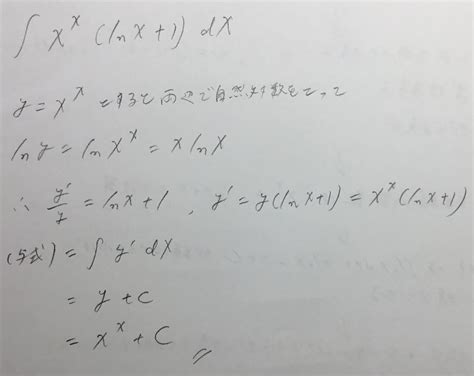 ∫ x^x (ln x + 1) dx
y = x^x とすると両辺で自然対数をとって
ln y = ln x^x = x ln x
∴ y'/y = ln x + 1 , y' = y(ln x + 1) = x^x (ln x + 1)
(与式) = ∫ y' dx
= y + C
= x^x + C //